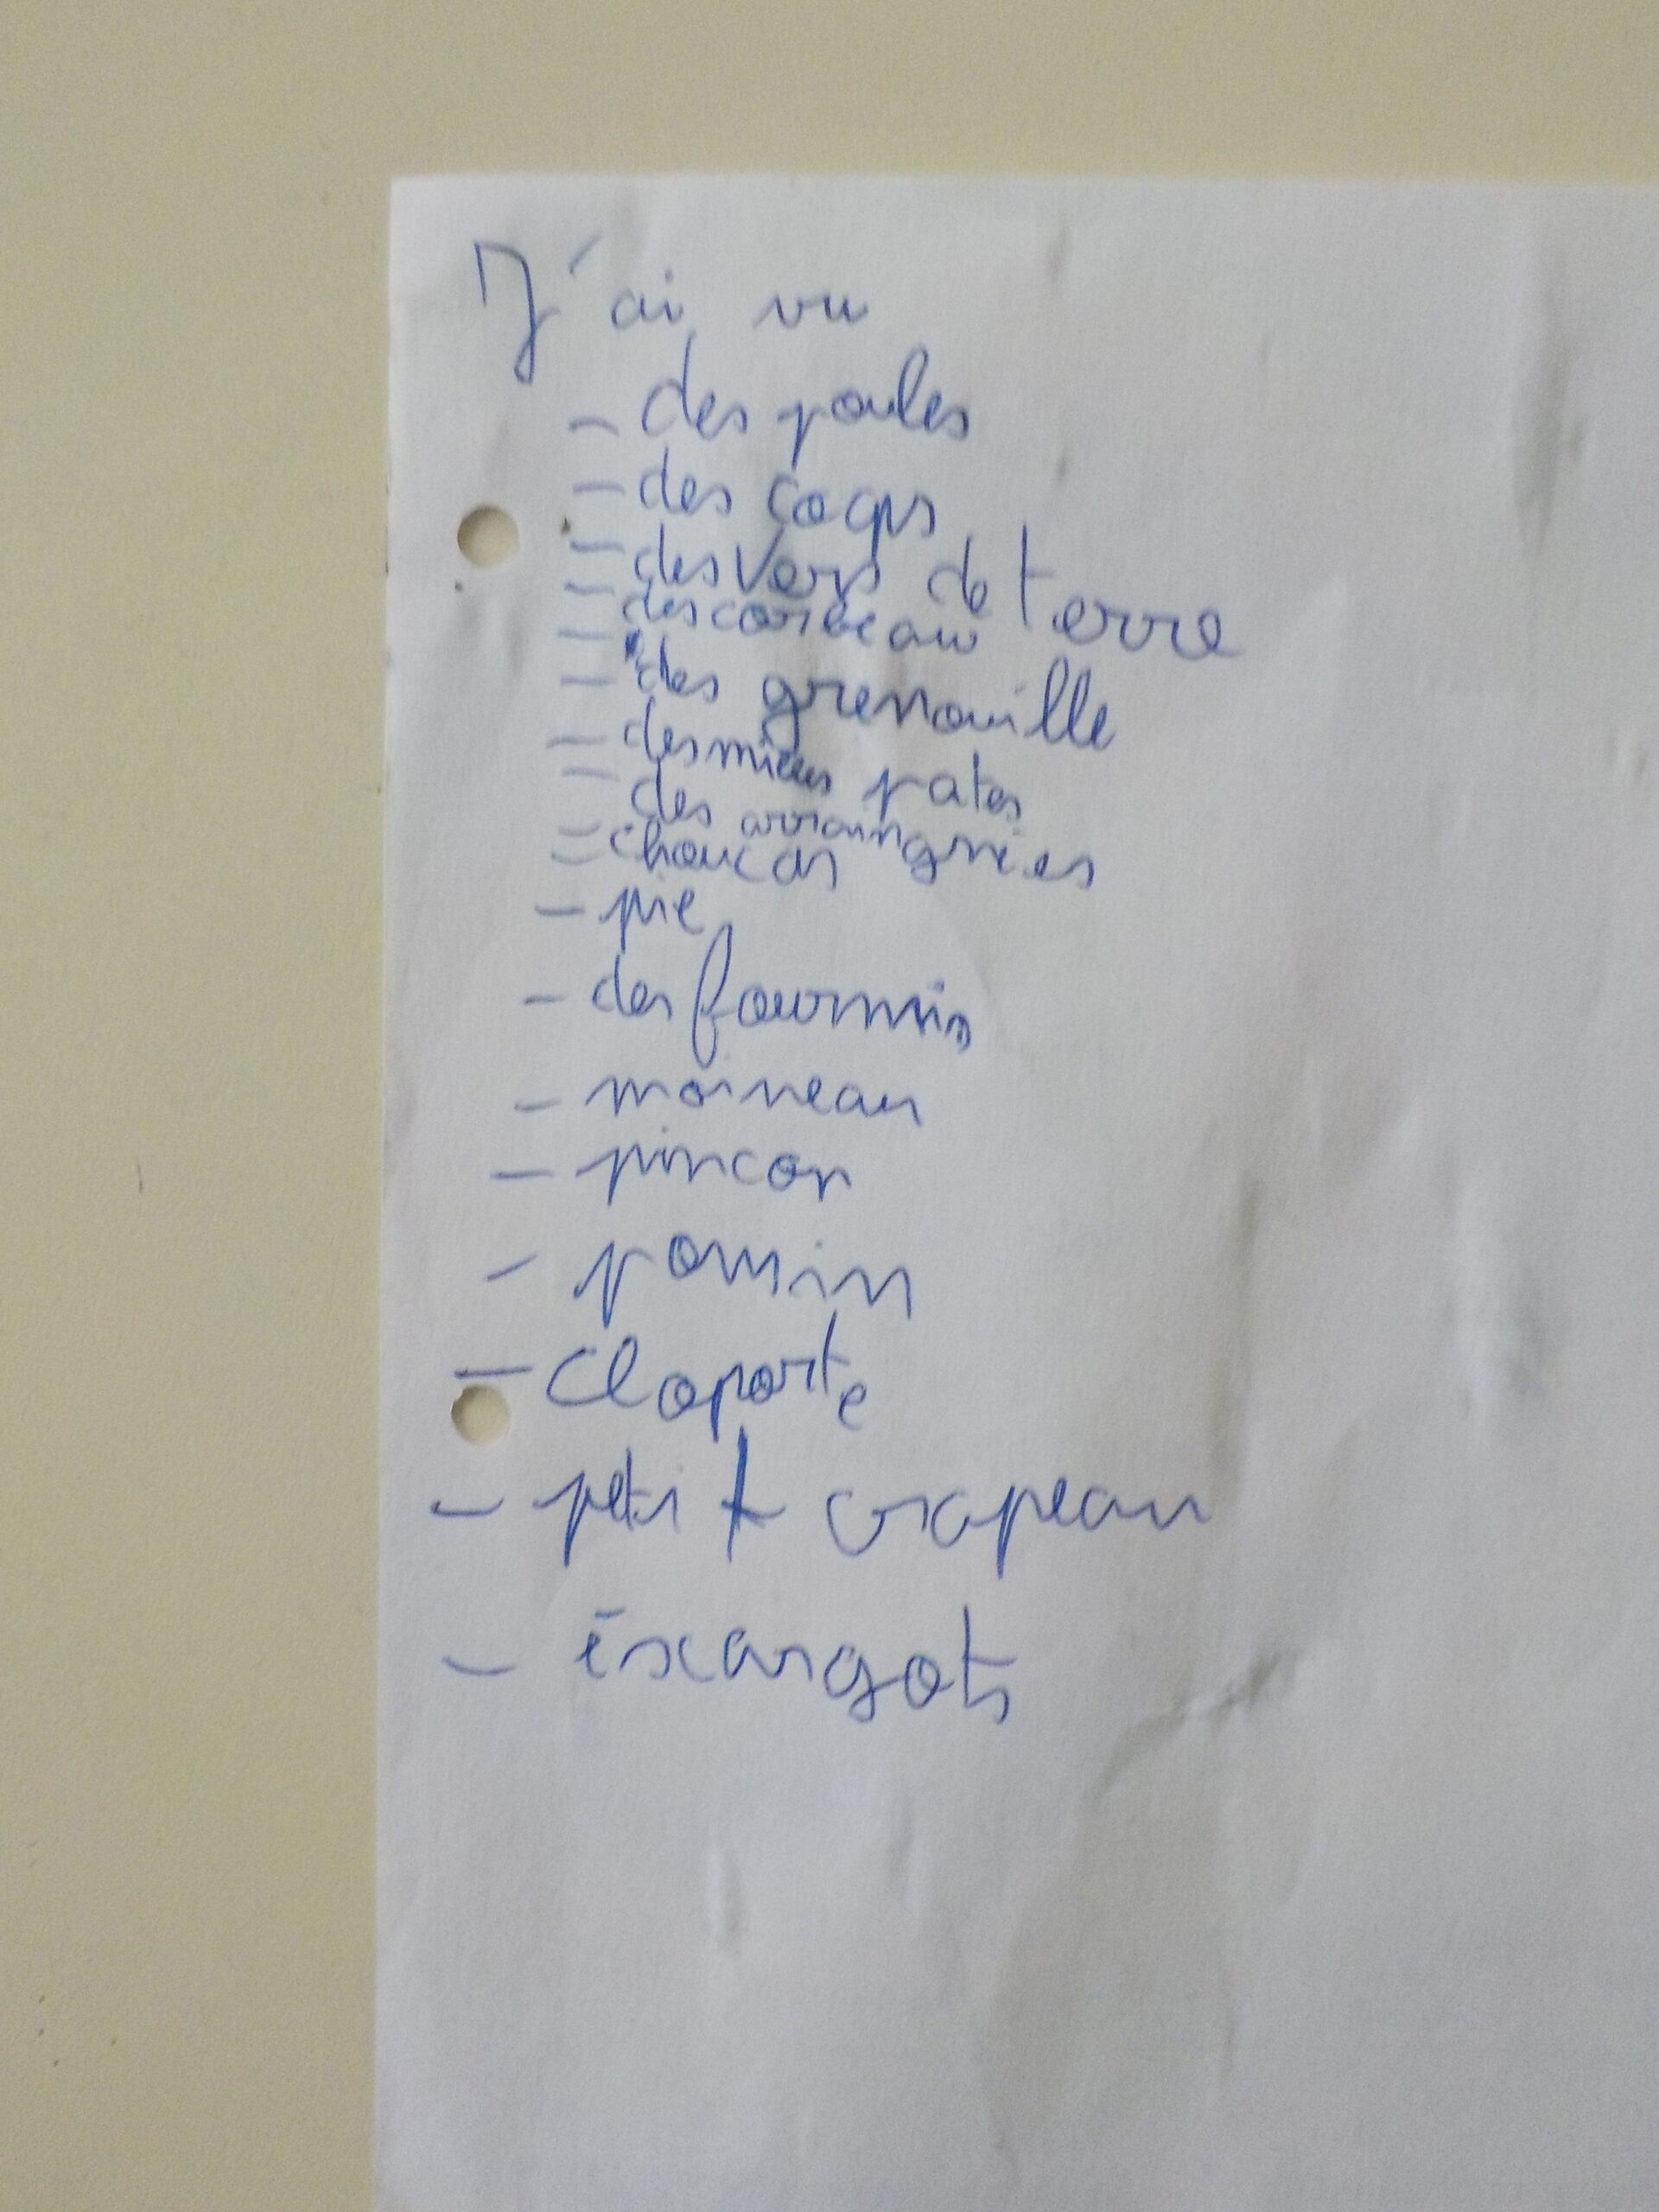 J'ai vu
- des poules
- des coqs
- des Vers de terre
- des corbeau
- des grenouille
- des milles pates
- des arraingnées
- choucas
- pie
- des fourmis
- moineau
- pincon
- poussin
- Cloporte
- petit crapeau
- éscargots